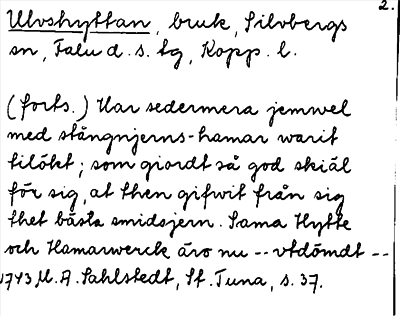 2.
Ulvshyttan, bruk, Silvbergs
sn, Falu d. s. tg, Kopp. l.
(forts.) Har sedermera jemwel
med stångnjerns-hamar warit
tilökt; som giordt så god skiäl
för sig, at then gifwit från sig
thet bästa smidsjern. Sama Hytte
och Hamarwerck äro nu -- vtdömdt --
1743, M. A. Sahlstedt, St. Tuna, s. 37.